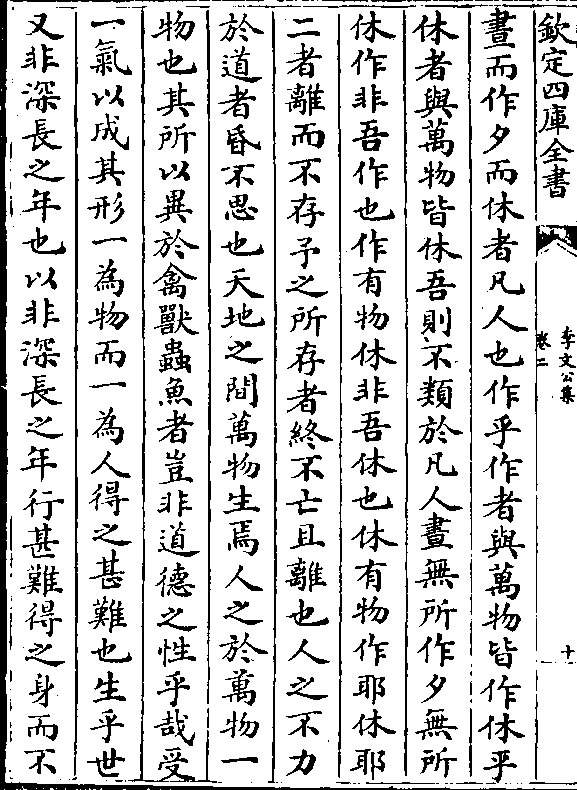 欽定四庫全書
李文公集
卷二
十
晝而作夕而休者凡人也作乎作者與萬物皆作休乎
休者與萬物皆休吾則不類於凡人晝無所作夕無所
休作非吾作也作有物休非吾休也休有物作耶休耶
二者離而不存予之所存者終不亡且離也人之不力
於道者昏不思也天地之間萬物生焉人之於萬物一
物也其所以異於禽獸蟲魚者豈非道德之性乎哉受
一氣以成其形一為物而一為人得之甚難也生乎世
又非深長之年也以非深長之年行甚難得之身而不